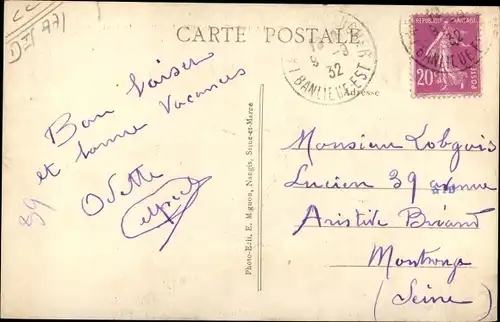 CARTE POSTALE
Adresse
REPUBLIQUE FRANÇAISE
20c
POSTES
32
BANLIEUE EST
32
BANLIEUE
Bon baiser
et bonne Vacances
Odette
89
Photo-Edit. E. Mignon, Nangis, Seine-et-Marne
Monsieur Lobgeois
Lucien 39 avenue
Aristide Briand
Montrouge
(Seine)